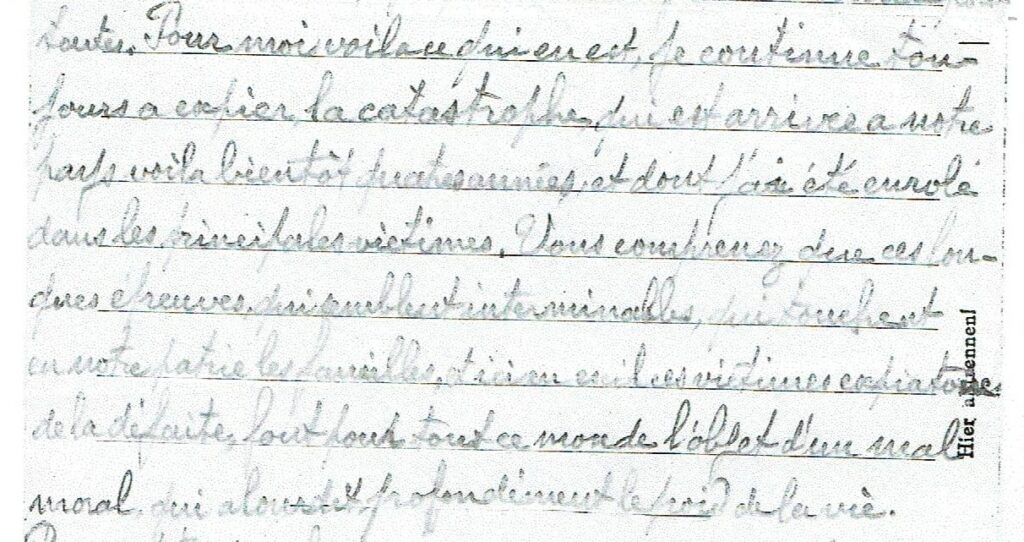 toutes. Pour moi voila ce qui en est, je continue tou-
jours a expier, la catastrophe, qui est arrivée a notre
pays voila bientôt quatres années, et dont j'ai été enrolé
dans les principales victimes. Vous comprenez que ces lon-
gues épreuves, qui semblent interminables, qui touchent
en notre patrie les familles, et ici en exil, ces victimes expiatoires
de la défaite, sont pour tout ce monde l'objet d'un mal
moral, qui alourdit profondément le poid de la vie.
Hier abtrennen!